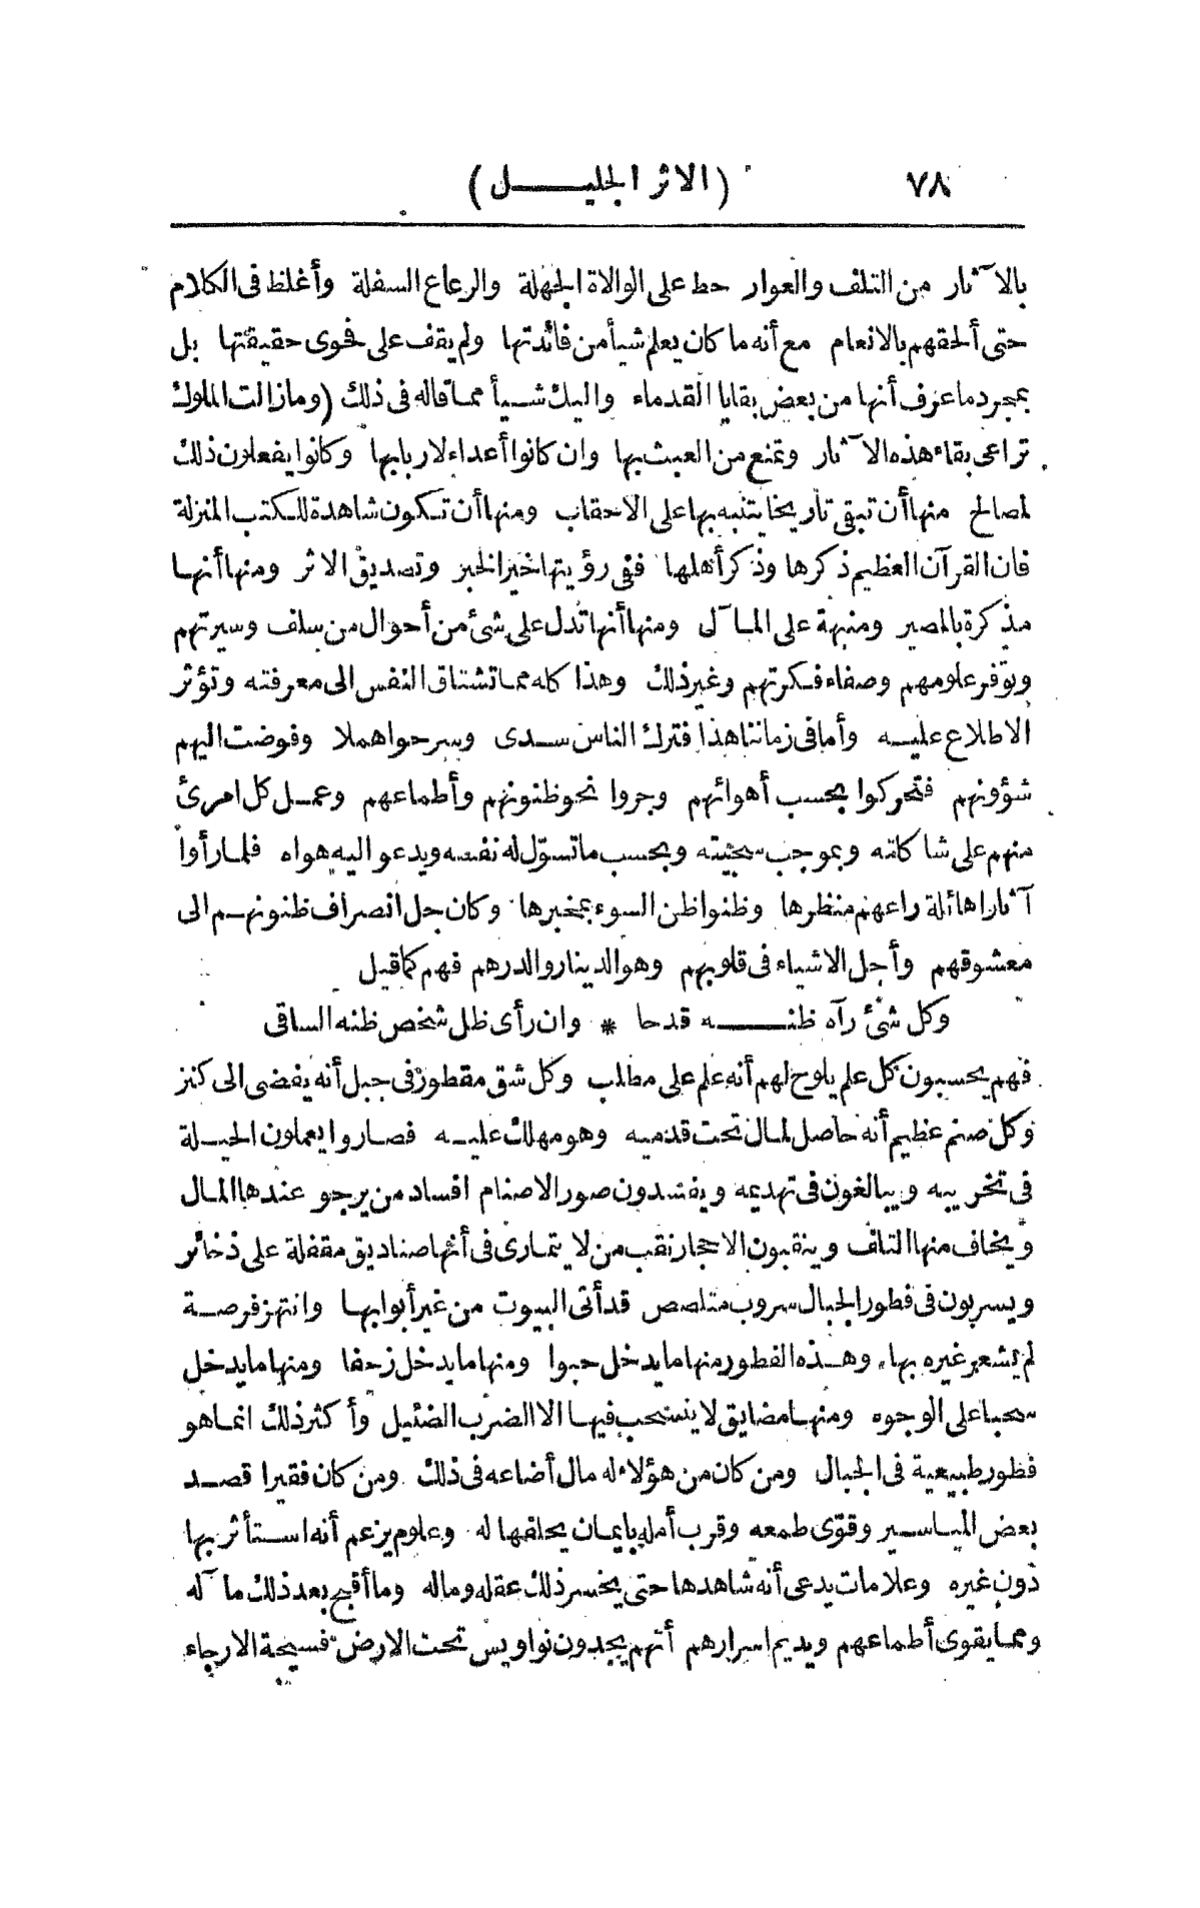 ٧٨ (الاثر الجليل)
بالآثار من التلف والعوار حط على الولاة الجهلة والرعاع السفلة وأغلظ فى الكلام
حتى ألحقهم بالانعام مع أنه ما كان يعلم شيأ من فائدتها ولم يقف على فحوى حقيقتها بل
بمجرد ما عرف أنها من بعض بقايا القدماء واليك شيأ مما قاله فى ذلك (وما زالت الملوك
تراعى بقاء هذه الآثار وتمنع من العبث بها وان كانوا أعداء لاربابها وكانوا يفعلون ذلك
لمصالح منها أن تبقى تاريخا يتنبه بها على الاحقاب ومنها أن تكون شاهدة للكتب المنزلة
فان القرآن العظيم ذكرها وذكر أهلها ففى رؤيتها خبر الخبر وتصديق الاثر ومنها أنها
مذكرة بالمصير ومنبهة على المآل ومنها أنها تدل على شئ من أحوال من سلف وسيرتهم
وتوفر علومهم وصفاء فكرتهم وغير ذلك وهذا كله مما تشتاق النفس الى معرفته وتؤثر
الاطلاع عليه وأما فى زماننا هذا فترك الناس سدى وسرحوا هملا وفوضت اليهم
شؤونهم فتحركوا بحسب أهوائهم وجروا نحو ظنونهم وأطماعهم وعمل كل امرئ
منهم على شاكلته وبموجب سجيته وبحسب ما تسوّل له نفسه ويدعو اليه هواه فلما رأوا
آثارا هائلة راعهم منظرها وظنوا ظن السوء بمخبرها وكان جل انصراف ظنونهم الى
معشوقهم وأجل الاشياء فى قلوبهم وهو الدينار والدرهم فهم كما قيل
وكل شئ رآه ظنه قدحا * وان رأى ظل شخص ظنه الساقى
فهم يحسبون كل علم يلوح لهم أنه علم على مطلب وكل شق مفطور فى جبل أنه يفضى الى كنز
وكل صنم عظيم أنه حاصل لمال تحت قدميه وهو مهلك عليه فصاروا يعملون الحيلة
فى تخريبه ويبالغون فى تهديمه ويفسدون صور الاصنام افساد من يرجو عندها المال
ويخاف منها التلف وينقبون الاحجار نقب من لا يتمارى فى أنها صناديق مقفلة على ذخائر
ويسربون فى فطور الجبال سروب متلصص قد أتى البيوت من غير أبوابها وانتهز فرصة
لم يشعر غيره بها وهذه الفطور منها ما يدخل حبوا ومنها ما يدخل زحفا ومنها ما يدخل
سحبا على الوجوه ومنها مضايق لا ينسحب فيها الا الضرب الضئيل وأكثر ذلك انما هو
فطور طبيعية فى الجبال ومن كان من هؤلاء له مال أضاعه فى ذلك ومن كان فقيرا قصد
بعض المياسير وقوّى طمعه وقرب أمله بايمان يحلفها له وعلوم يزعم أنه استأثر بها
دون غيره وعلامات يدعى أنه شاهدها حتى يخسر ذلك عقله وماله وما أقبح بعد ذلك مآله
ومما يقوى أطماعهم ويديم اسرارهم أنهم يجدون نواويس تحت الارض فسيحة الارجاء